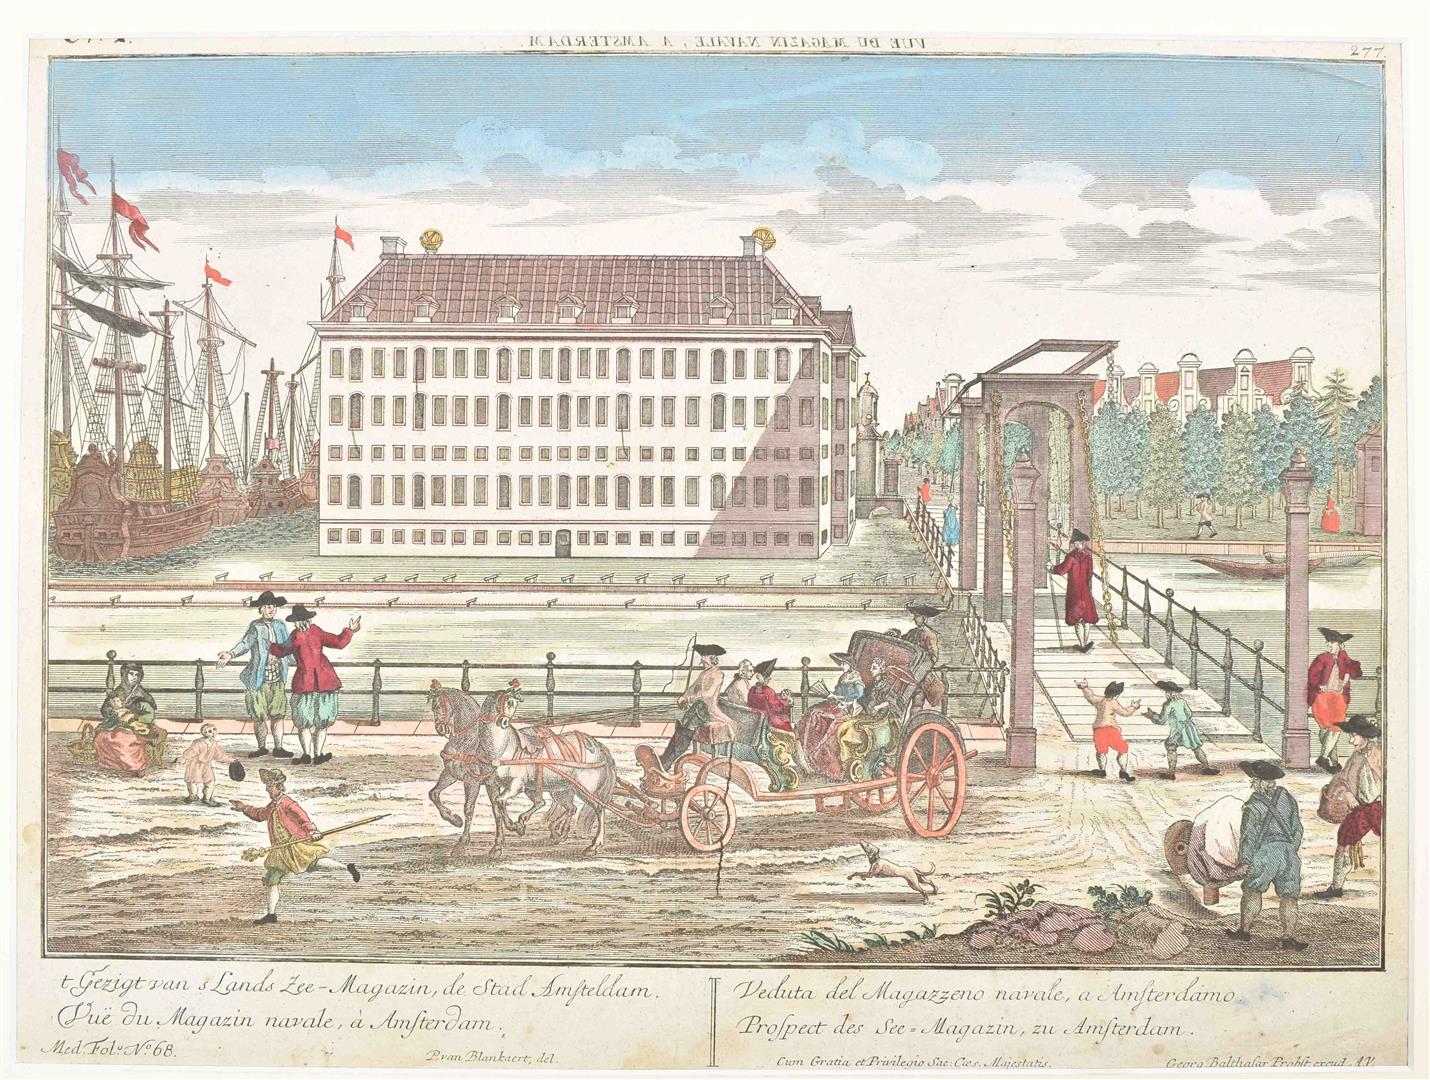 VUE DU MAGAZIN NAVALE, A AMSTERDAM.
277.
t Gezigt van s Lands Zee-Magazin, de Stad Amsteldam.
Vuë du Magazin navale, à Amsterdam.
Med. Fol.º Nº 68.
P. van Blankaert, del.
Veduta del Magazzeno navale, a Amsterdamo
Prospect des See=Magazin, zu Amsterdam.
Cum Gratia et Privilegio Sac. Cæs. Majestatis.
Georg Balthasar Probst excud. A.V.